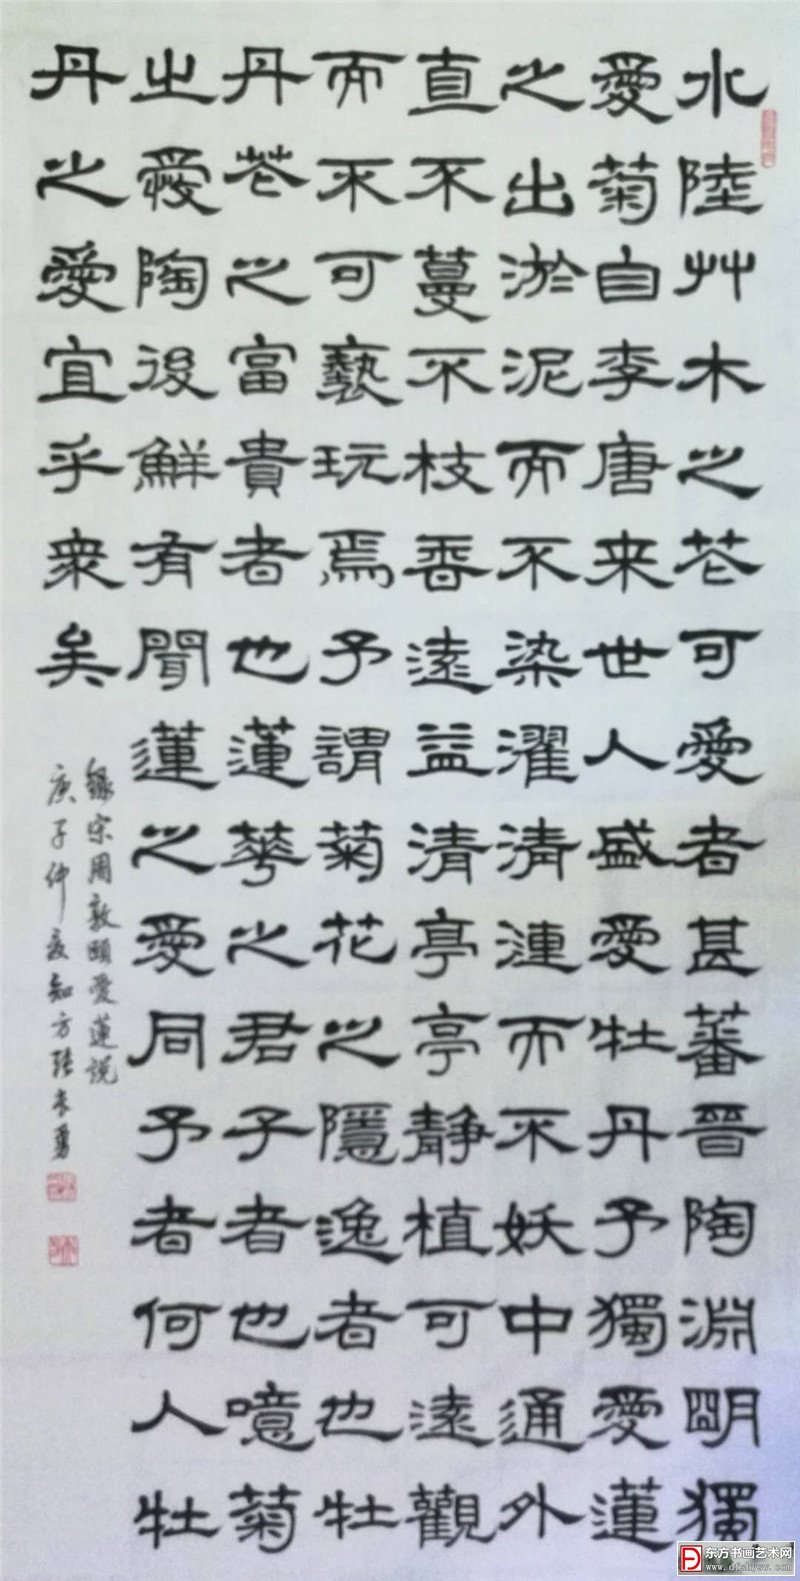 水陸艸木之花可愛者甚蕃晉陶淵明獨
愛菊自李唐来世人盛愛牡丹予獨愛蓮
之出淤泥而不染濯清漣而不妖中通外
直不蔓不枝香遠益清亭亭静植可遠觀
而不可褻玩焉予謂菊花之隱逸者也牡
丹花之富貴者也蓮華之君子者也噫菊
之愛陶後鮮有聞蓮之愛同予者何人牡
丹之愛宜乎衆矣
錄宋周敦頤愛蓮説
庚子仲夏知方張
东方书画艺术网
www.dfshysw.com